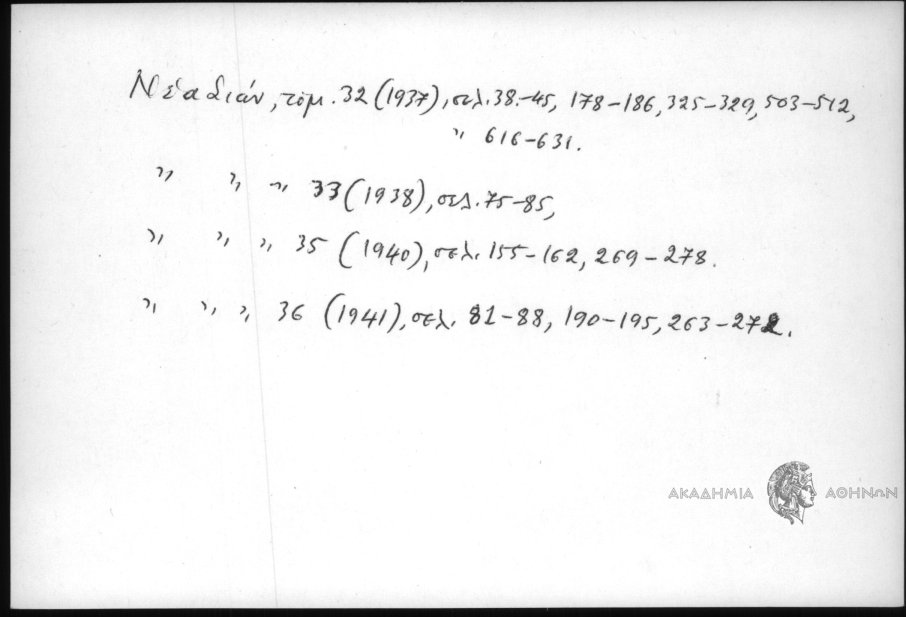 Νέα Σιών, τόμ. 32 (1937), σελ. 38.-45, 178-186, 325-329, 503-512,
" 616-631.
" " " 33 (1938), σελ. 75-85,
" " " 35 (1940), σελ. 155-162, 269-278.
" " " 36 (1941), σελ. 81-88, 190-195, 263-272.
ΑΚΑΔΗΜΙΑ ΑΘΗΝΩΝ